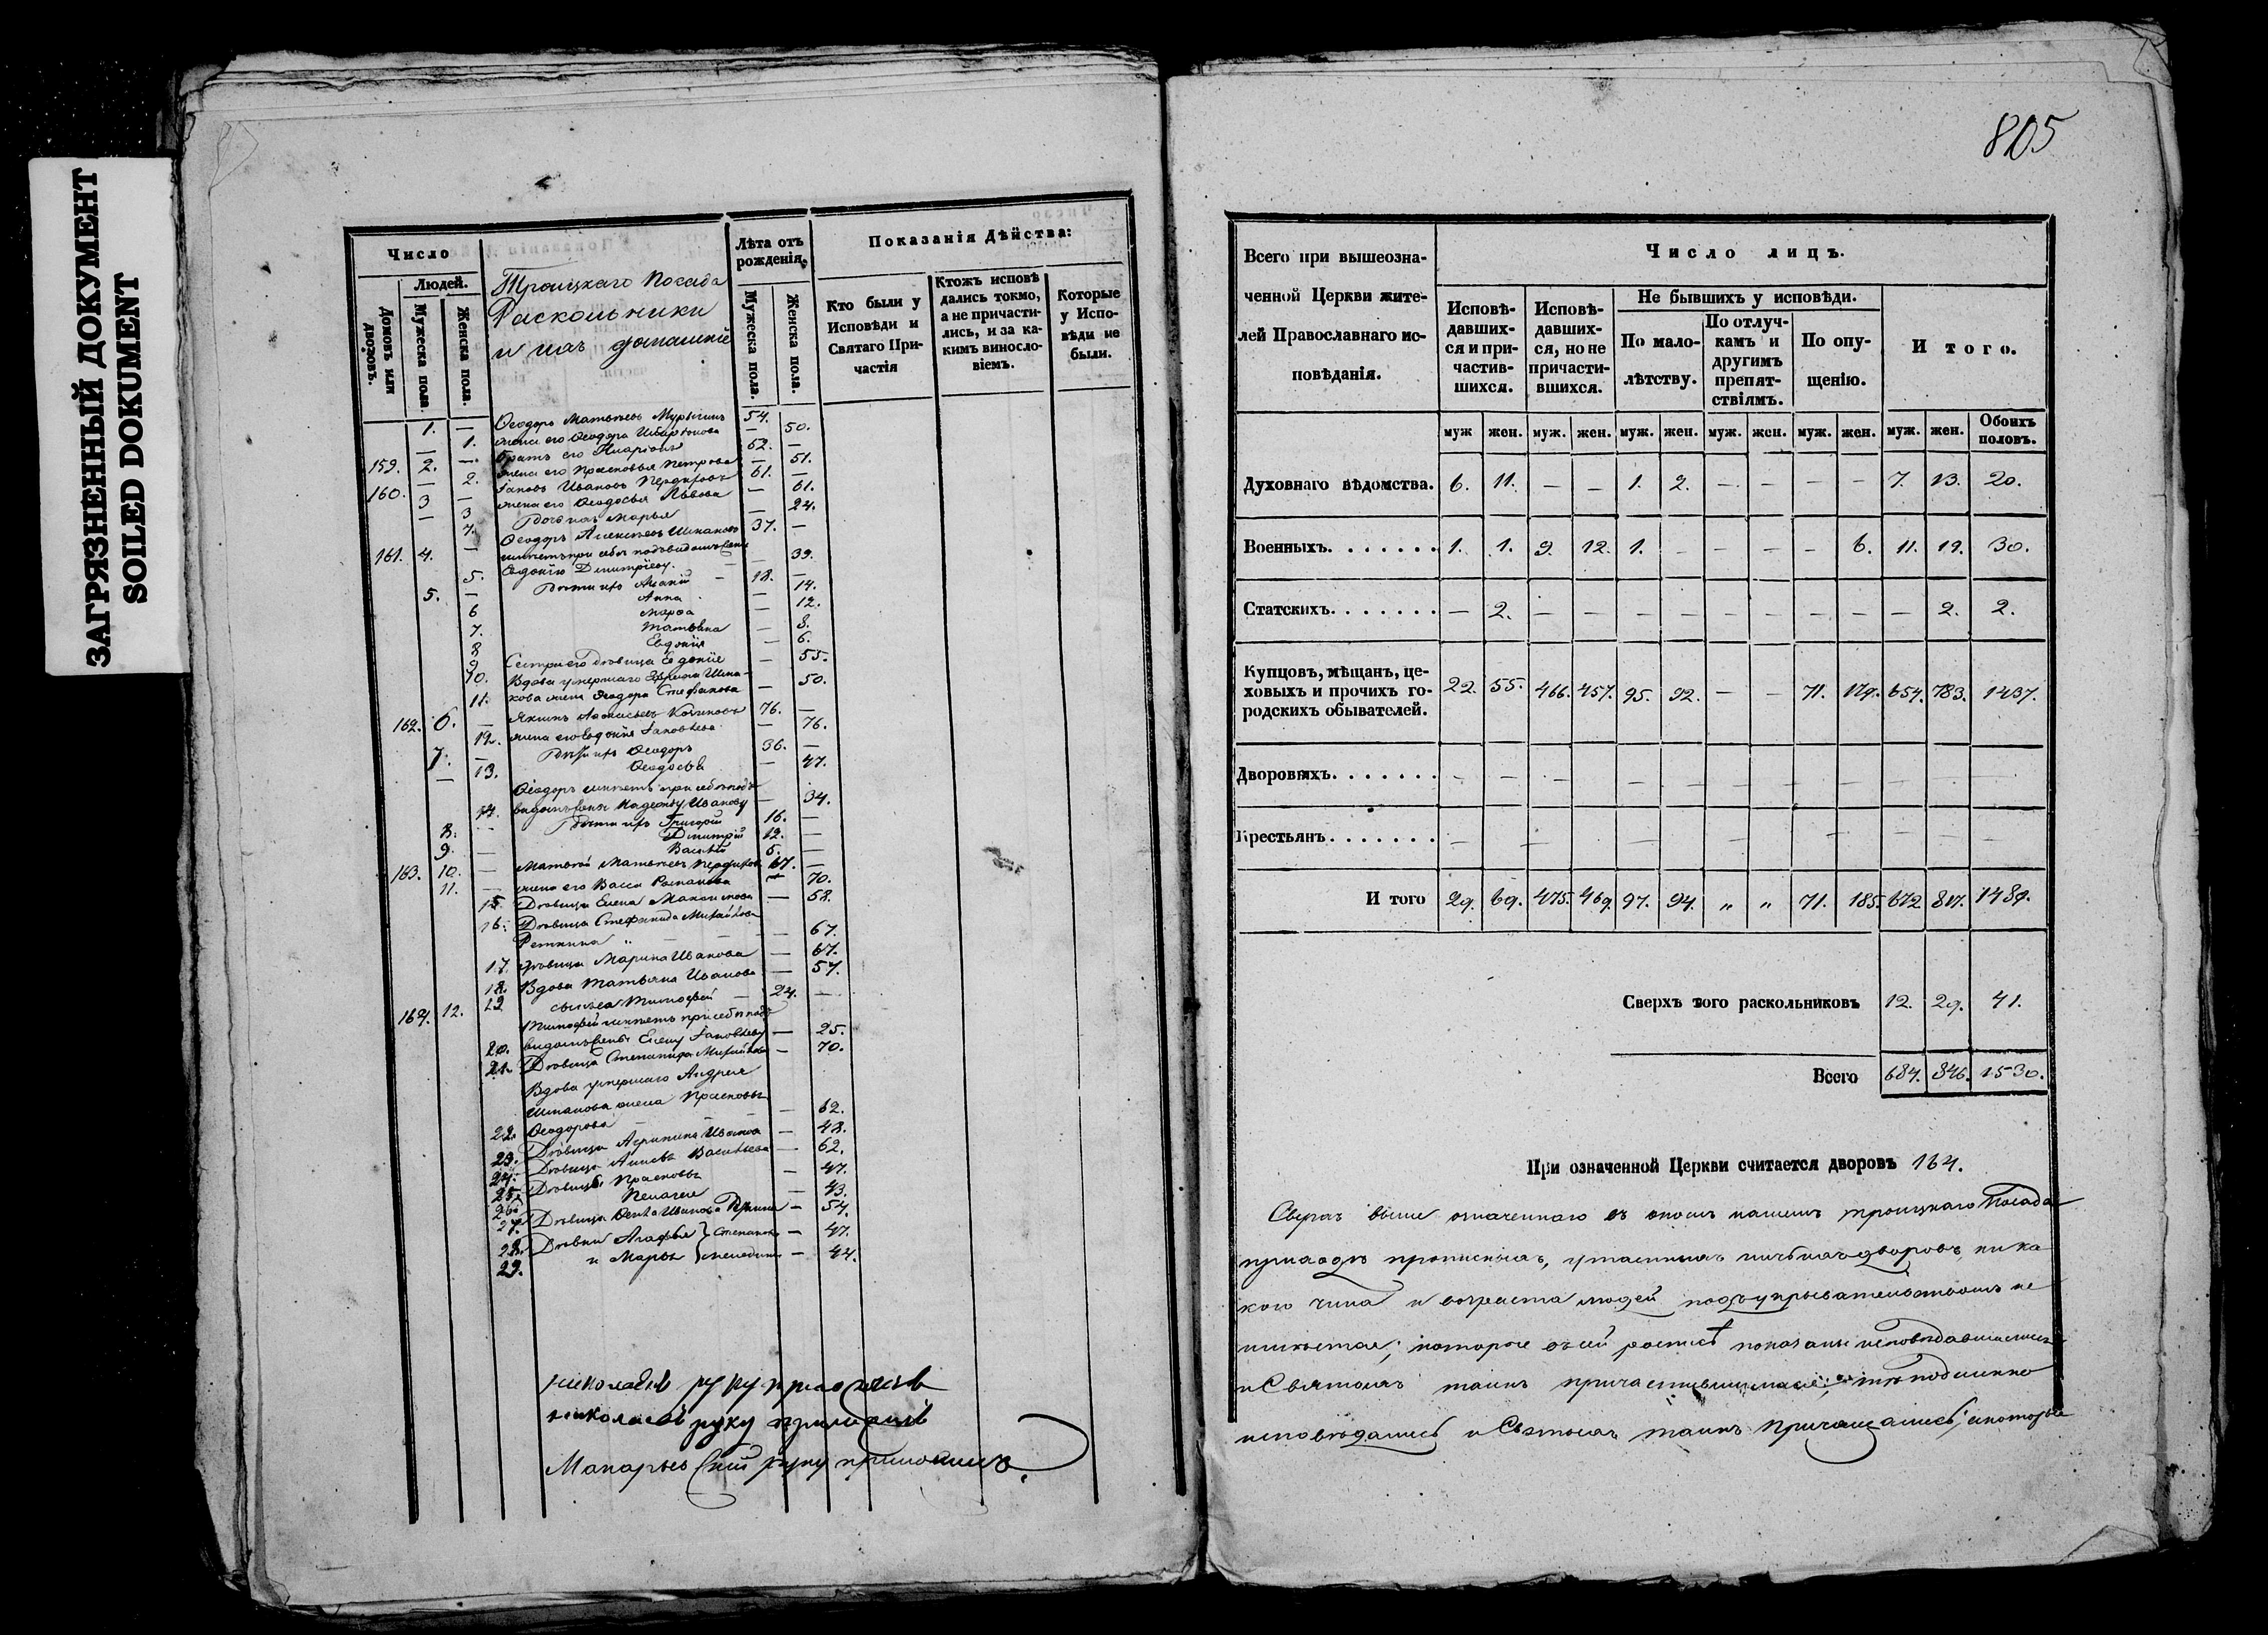 ЗАГРЯЗНЕННЫЙ ДОКУМЕНТ
SOILED DOKUMENT
Число
Людей.
Домовъ или дворовъ.
Мужеска пола.
Женска пола.
Троицкаго Посада
Раскольники
и ихъ домашніе
Лѣта отъ рожденія.
Мужеска пола.
Женска пола.
Показанія Дѣйства:
Кто были у Исповѣди и Святаго Причастія
Ктожъ исповѣдались токмо, а не причастились, и за какимъ винословіемъ.
Которые у Исповѣди не были.
1. — Ѳеодоръ Матвѣевъ 54.
— 1. жена его Ѳеодора — 50.
159. 2. — братъ его Иларіонъ 52. —
— 2. жена его Прасковья Петрова — 51.
160. 3 — Іаковъ Ивановъ 61. —
— 3 жена его Ѳеодосья Львова — 61.
дочь ихъ Марья — 24.
161. 4. — Ѳеодоръ Алексѣевъ 37. —
имѣетъ при себѣ подъ видомъ жены
5. Евдокію Димитріеву. — 39.
5. — Дѣти ихъ 18. —
6 Анна — 14.
7. Марѳа — 12.
8 Татьяна — 8.
9 Евдокія — 6.
10. Сестра его дѣвица Евдокія — 55.
Вдова умершаго
11. жена Ѳеодора Стефанова — 50.
162. 6. — Якимъ 76. —
12. жена его Евдокія Іаковлева — 76.
7. — Дѣти ихъ Ѳеодоръ 36. —
— 13. Ѳеодосья — 47.
Ѳеодоръ имѣетъ при себѣ подъ
14. видомъ жены Надежду Иванову — 34.
8. — Дѣти ихъ Григорій 16. —
9. — Димитрій 12. —
Василій 5. —
163. 10. — Матвѣй Матвѣевъ 67. —
11. — жена его Васса Романова — 70.
15. Дѣвица Елена — 58.
16. Дѣвица Стефанида Михайлова
— 67.
17. дѣвица Марина Иванова — 67.
18. Вдова Татьяна Иванова — 57.
164. 12. 19 сынъ ея Тимоѳей — 24. —
Тимоѳей имѣетъ при себѣ подъ
20. видомъ жены Елену Іаковлеву — 25.
21. Дѣвица Степанида Михайлова — 70.
Вдова умершаго Андрея
жена Прасковья
22. Ѳеодорова — 62.
23. Дѣвица Агрипина Иванова — 48.
24. Дѣвица Васильева — 62.
25. Дѣвицы Прасковья — 47.
26 Пелагея — 43.
27. Дѣвица Иванова — 54.
28. Дѣвки Агафья — 47.
29. и Марья — 44.
руку приложилъ
руку приложилъ
руку приложилъ.
805
Всего при вышеозначенной Церкви жителей Православнаго исповѣданія.
Число лицъ.
Исповѣдавшихся и причастившихся.
Исповѣдавшихся, но не причастившихся.
Не бывшихъ у исповѣди.
По малолѣтству.
По отлучкамъ и другимъ препятствіямъ.
По опущенію.
Итого.
муж жен. муж. жен. муж. жен. муж. жен. муж. жен. муж. жен. Обоихъ половъ.
Духовнаго вѣдомства. 6. 11. — — 1. 2. — — — — 7. 13. 20.
Военныхъ. . . . . . . 1. 1. 9. 12. 1. — — — — 6. 11. 19. 30.
Статскихъ. . . . . . . — 2. — — — — — — — — — 2. 2.
Купцовъ, мѣщанъ, це-
ховыхъ и прочихъ го-
родскихъ обывателей. 22. 55. 466. 457. 95. 92. — — 71. 179. 654. 783. 1437.
Дворовыхъ. . . . . . . — — — — — — — — — — — — —
Крестьянъ. . . . . . . — — — — — — — — — — — — —
Итого 29. 69. 475. 469. 97. 94. „ „ 71. 185. 672. 817. 1489.
Сверхъ того раскольниковъ 12. 29. 41.
Всего 684. 846. 1530.
При означенной Церкви считается дворовъ 164.
Сверхъ выше означеннаго въ ономъ нашемъ Троицкаго Посада
приходѣ прописныхъ, утаенныхъ ничьихъ дворовъ, ника
кого чина и возраста людей не
которые въ сей росписѣ показаны исповѣдавшимися
и Святыхъ таинъ причастившимися, тѣ подлинно
исповѣдались и Святыхъ таинъ причащались; а которые